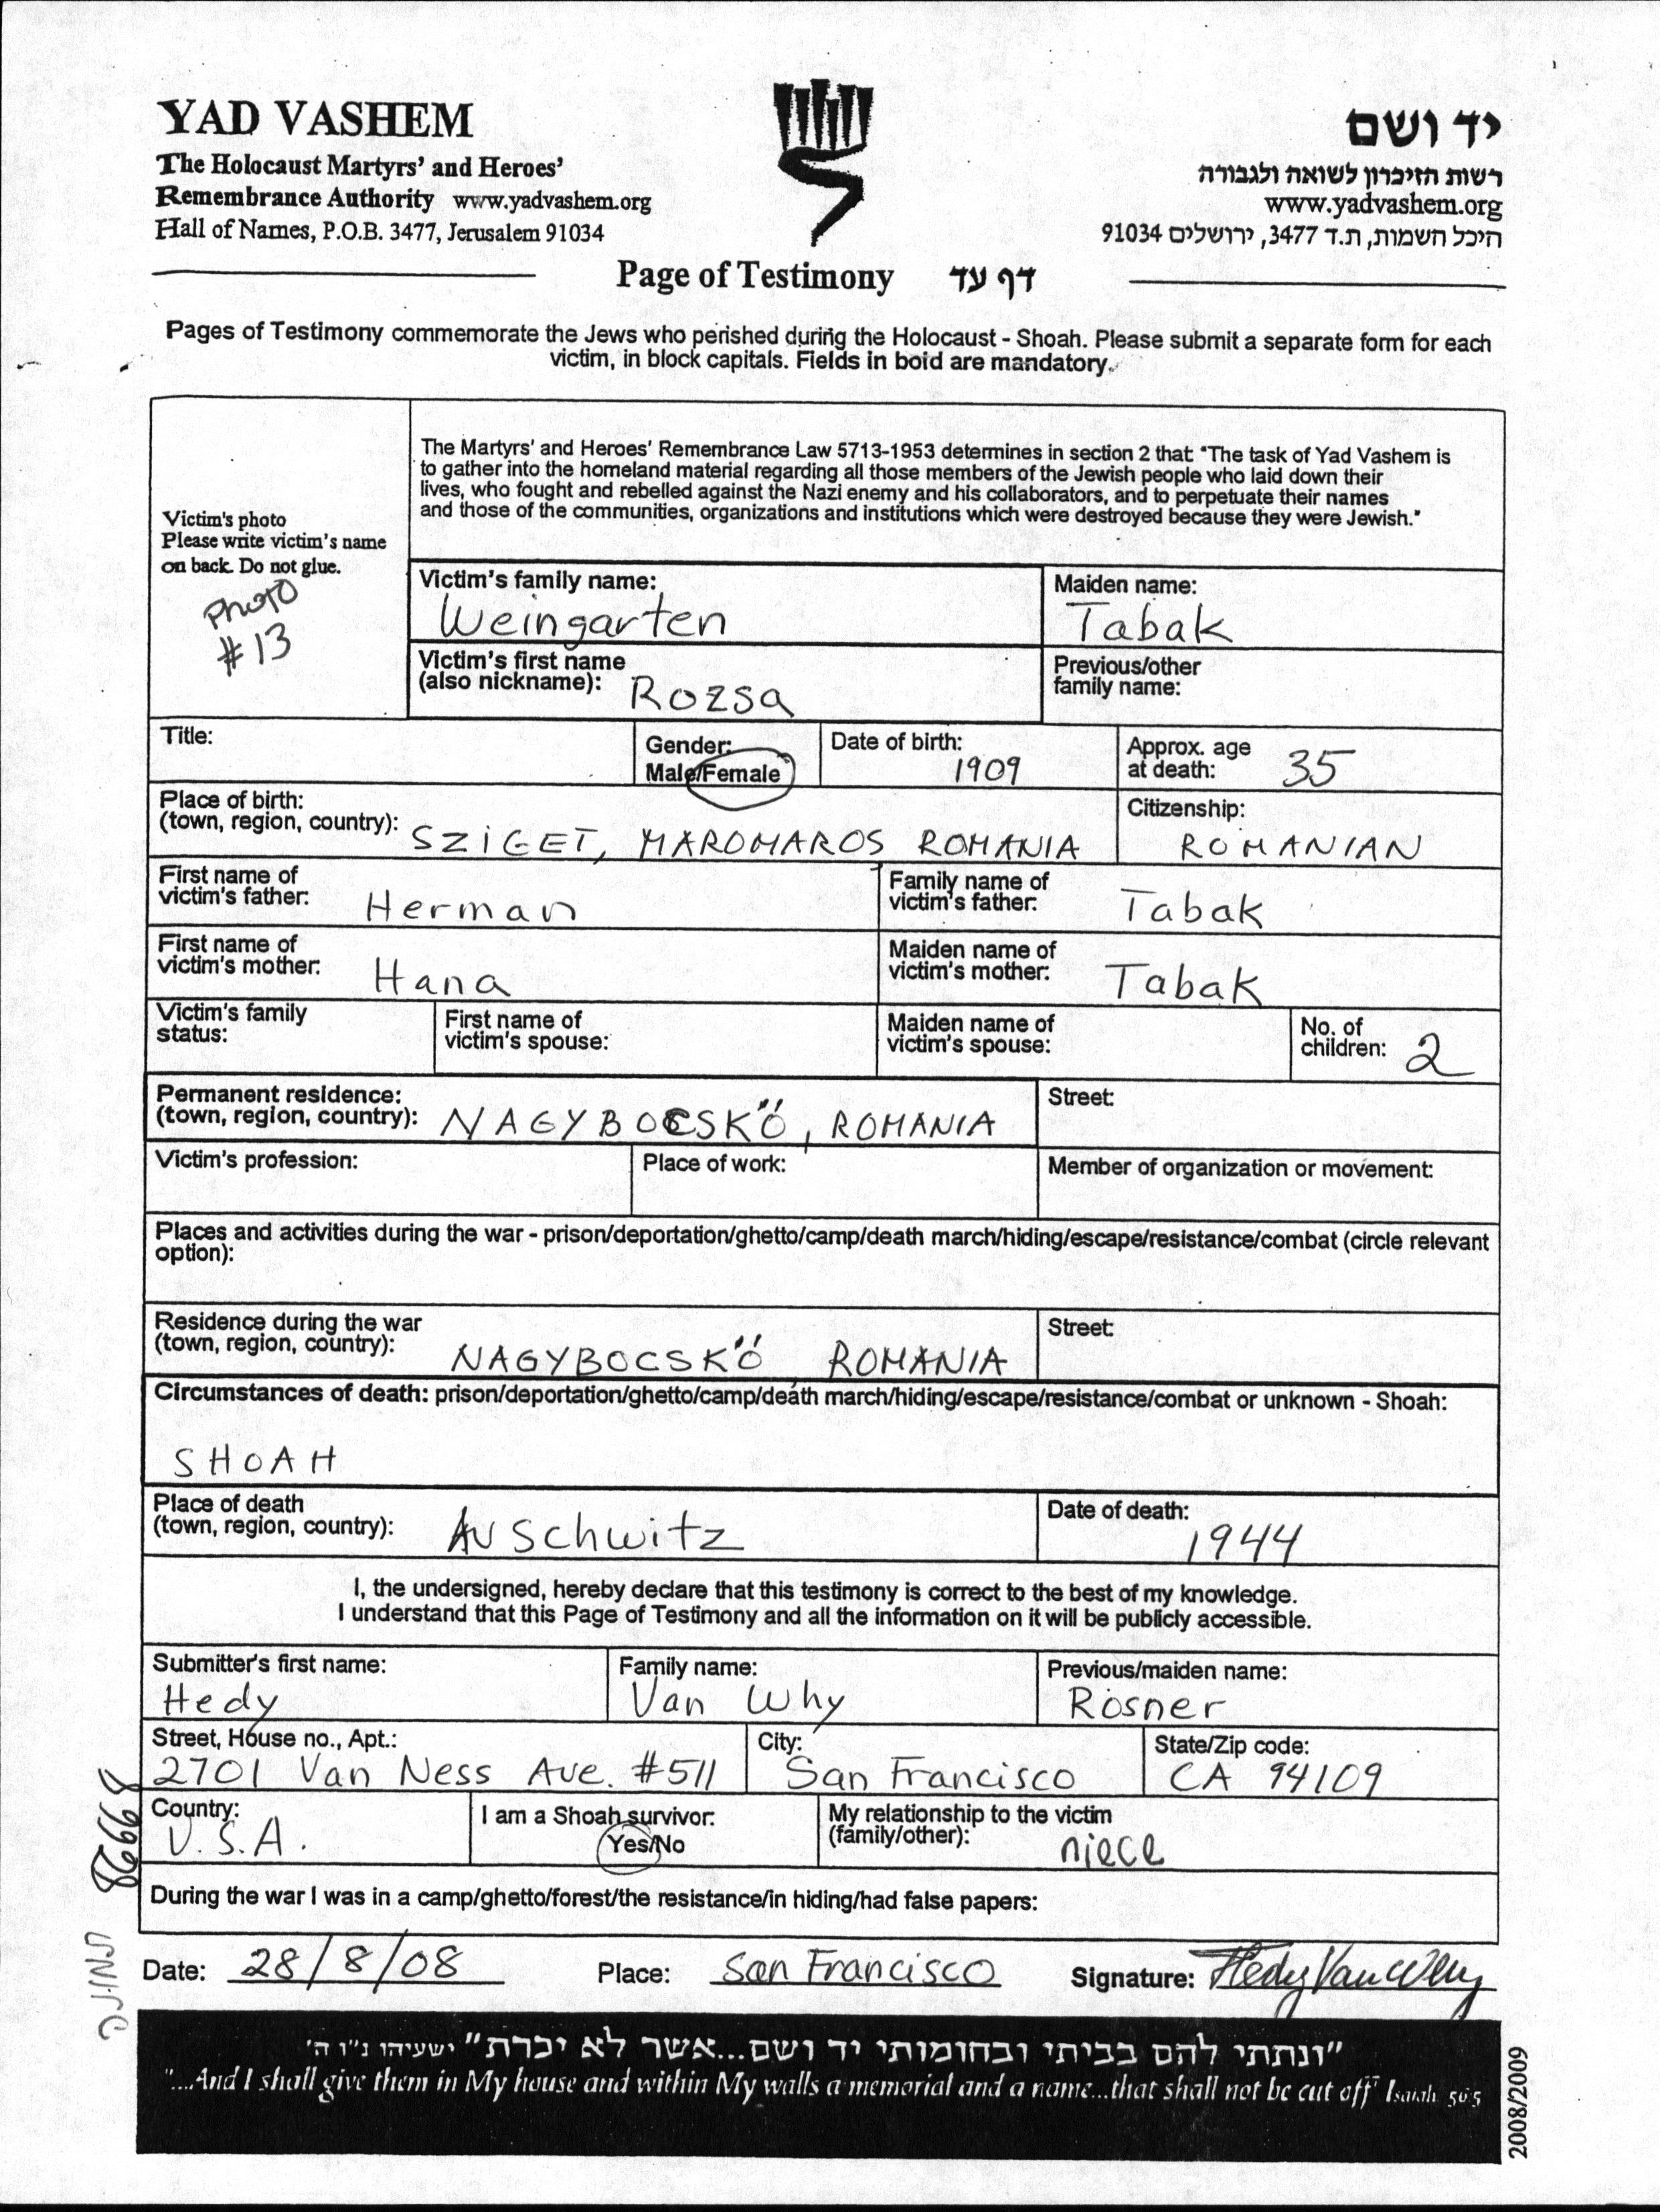 YAD VASHEM
The Holocaust Martyrs' and Heroes'
Remembrance Authority www.yadvashem.org
Hall of Names, P.O.B. 3477, Jerusalem 91034
יד ושם
רשות הזיכרון לשואה ולגבורה
www.yadvashem.org
היכל השמות, ת.ד 3477, ירושלים 91034
Page of Testimony דף עד
Pages of Testimony commemorate the Jews who perished during the Holocaust - Shoah. Please submit a separate form for each
victim, in block capitals. Fields in bold are mandatory.
Victim's photo
Please write victim's name
on back. Do not glue.
Photo
#13
The Martyrs' and Heroes' Remembrance Law 5713-1953 determines in section 2 that: "The task of Yad Vashem is
to gather into the homeland material regarding all those members of the Jewish people who laid down their
lives, who fought and rebelled against the Nazi enemy and his collaborators, and to perpetuate their names
and those of the communities, organizations and institutions which were destroyed because they were Jewish."
Victim's family name: Maiden name:
Weingarten Tabak
Victim's first name Previous/other
(also nickname): Rozsa family name:
Title: Gender: Date of birth: Approx. age
Male/Female 1909 at death: 35
Place of birth: Citizenship:
(town, region, country): SZIGET, MAROMAROS ROMANIA ROMANIAN
First name of Family name of
victim's father: Herman victim's father: Tabak
First name of Maiden name of
victim's mother: Hana victim's mother: Tabak
Victim's family First name of Maiden name of No. of
status: victim's spouse: victim's spouse: children: 2
Permanent residence: Street:
(town, region, country): NAGYBOCSKŐ, ROMANIA
Victim's profession: Place of work: Member of organization or movement:
Places and activities during the war - prison/deportation/ghetto/camp/death march/hiding/escape/resistance/combat (circle relevant
option):
Residence during the war Street:
(town, region, country): NAGYBOCSKŐ, ROMANIA
Circumstances of death: prison/deportation/ghetto/camp/death march/hiding/escape/resistance/combat or unknown - Shoah:
SHOAH
Place of death Date of death:
(town, region, country): Auschwitz 1944
I, the undersigned, hereby declare that this testimony is correct to the best of my knowledge.
I understand that this Page of Testimony and all the information on it will be publicly accessible.
Submitter's first name: Family name: Previous/maiden name:
Hedy Van Why Rosner
Street, House no., Apt.: City: State/Zip code:
2701 Van Ness Ave. #511 San Francisco CA 94109
Country: I am a Shoah survivor: My relationship to the victim
U.S.A. Yes/No (family/other): niece
During the war I was in a camp/ghetto/forest/the resistance/in hiding/had false papers:
Date: 28/8/08 Place: San Francisco Signature: Hedy Van Why
"ונתתי להם בביתי ובחומותי יד ושם...אשר לא יכרת" ישעיהו נ"ו ה'
"...And I shall give them in My house and within My walls a memorial and a name...that shall not be cut off" Isaiah 56:5
2008/2009